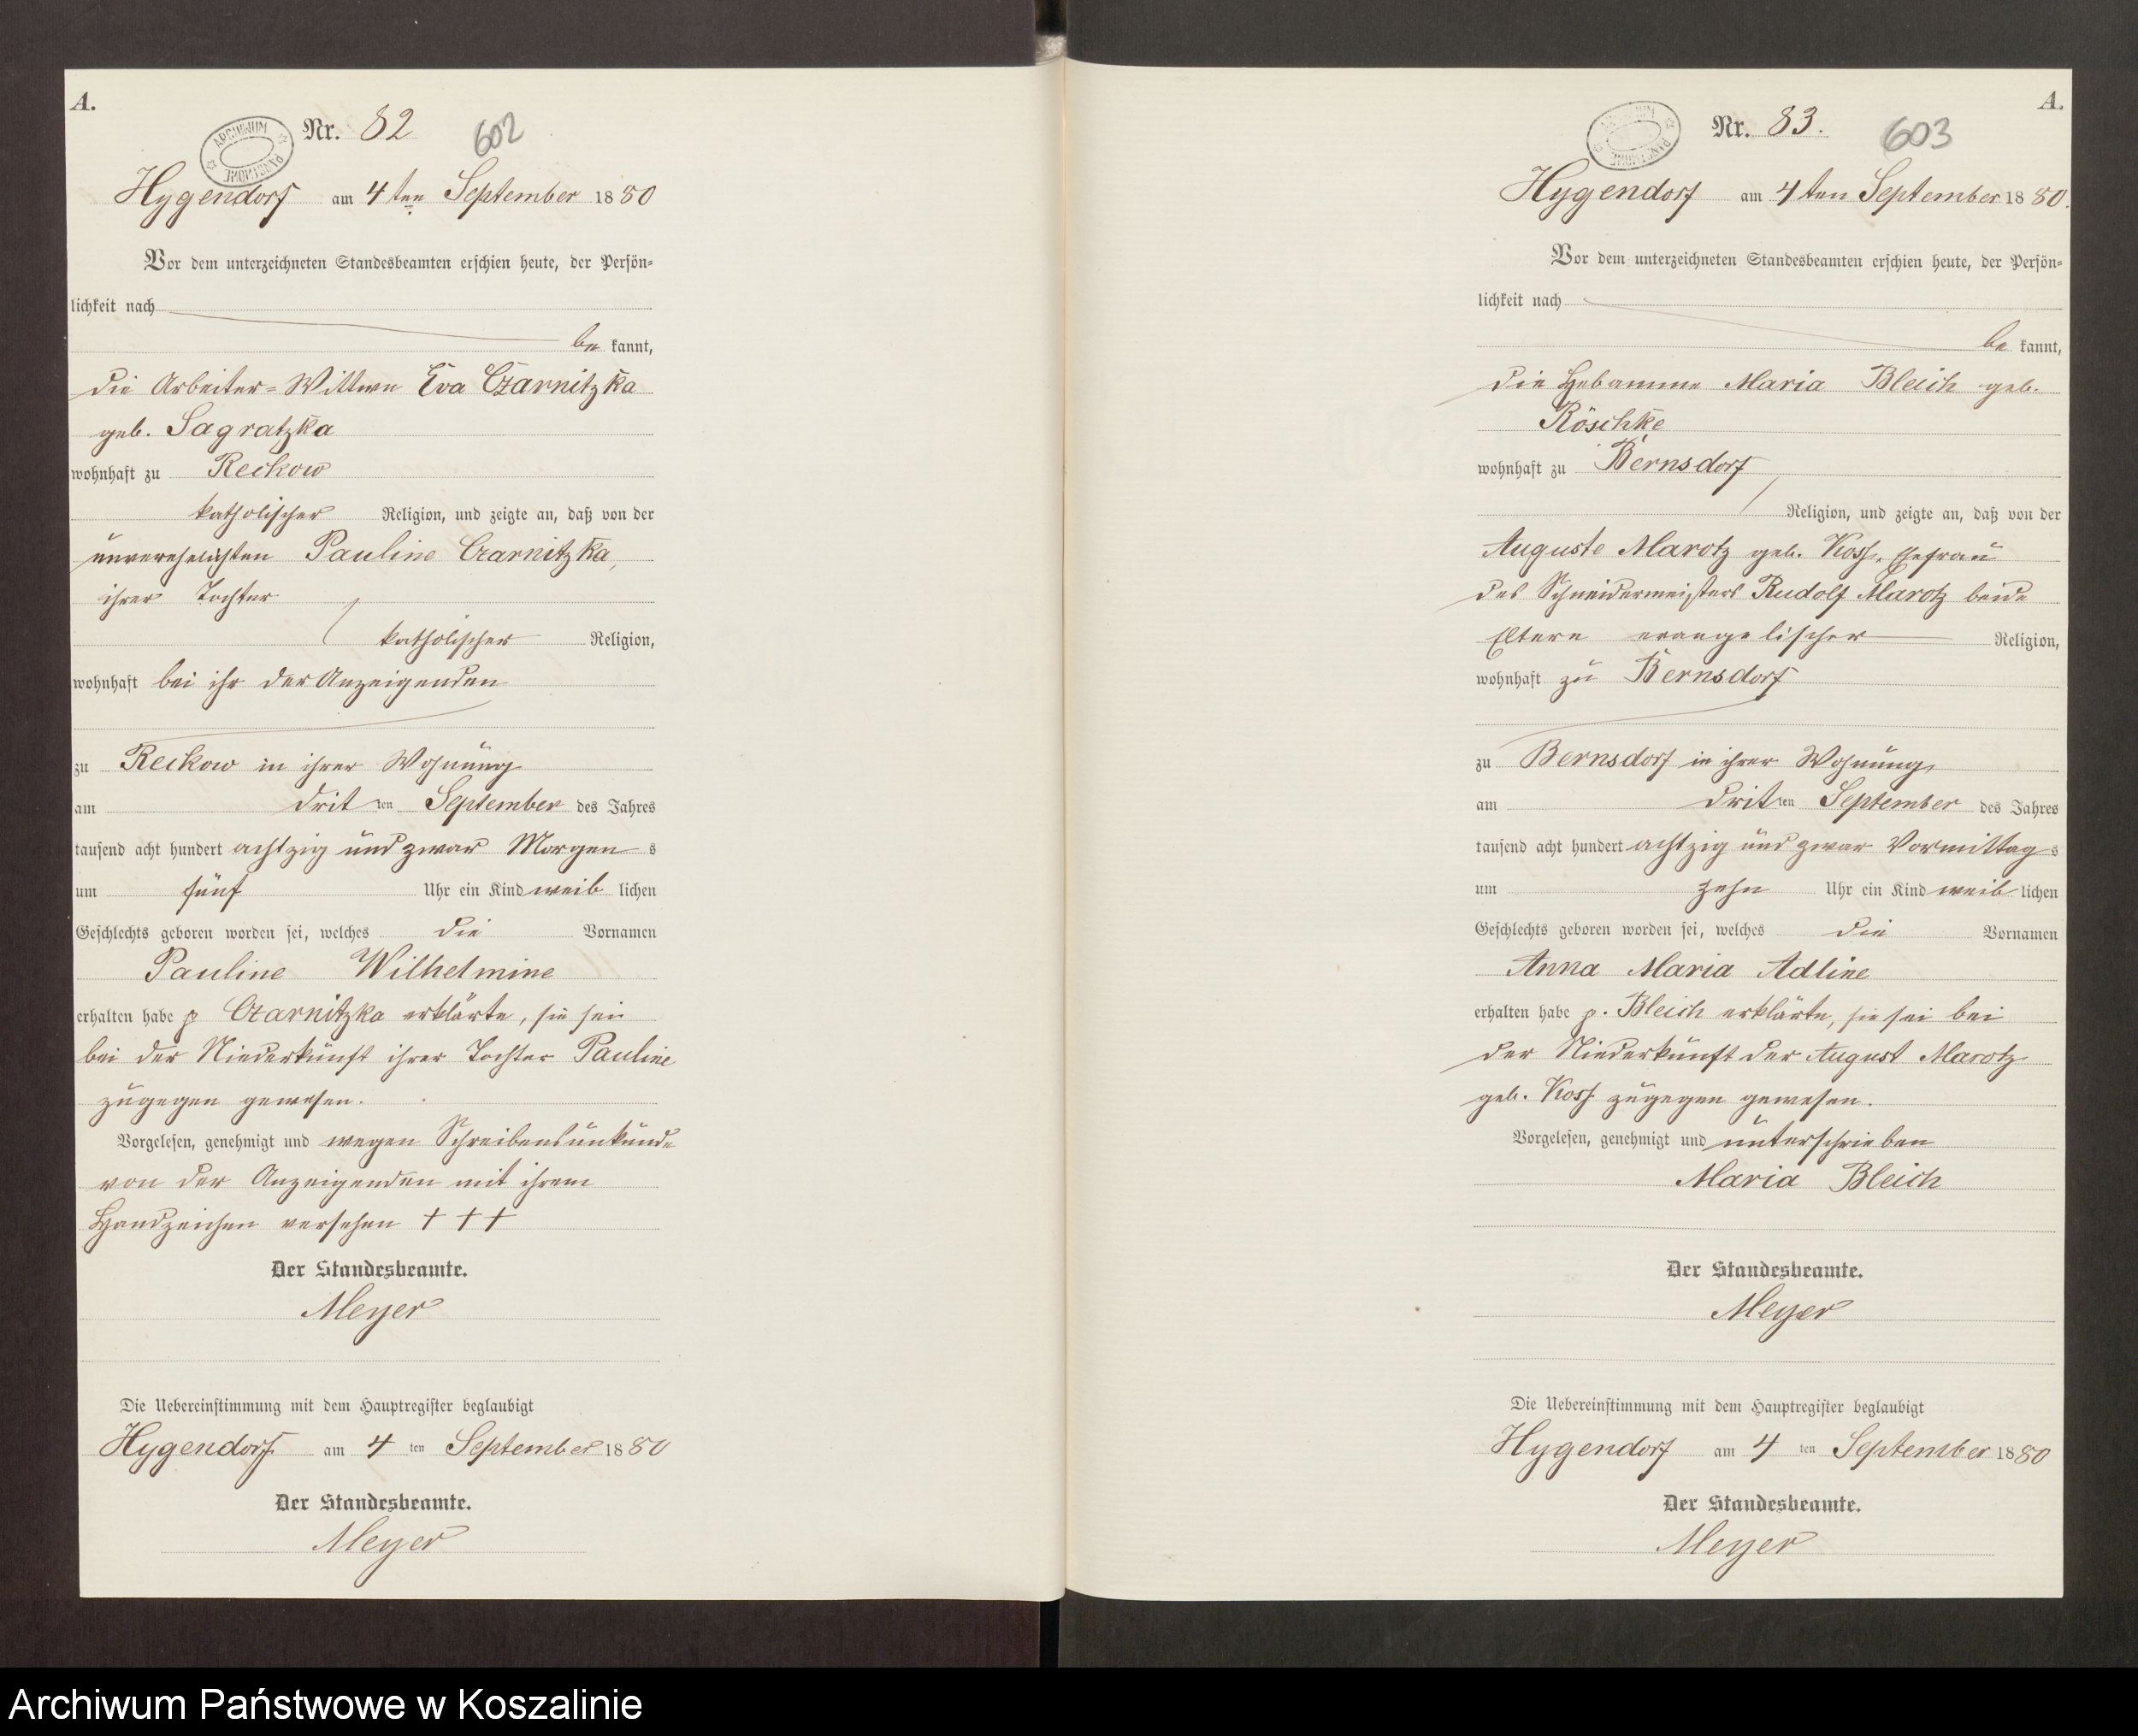 A.
ARCHIWUM PAŃSTWOWE
Nr. 82
602
Hygendorf am 4ten September 1880
Vor dem unterzeichneten Standesbeamten erschien heute, der Persön=
lichkeit nach
be kannt,
die Arbeiter=Wittwe Eva Czarnitzka
geb. Sagratzka
wohnhaft zu Reckow
katholischer Religion, und zeigte an, daß von der
unverehelichten Pauline Czarnitzka,
ihrer Tochter
katholischer Religion,
wohnhaft bei ihr der Anzeigenden
zu Reckow in ihrer Wohnung
am dritten September des Jahres
tausend acht hundert achtzig und zwar Morgens
um fünf Uhr ein Kind weiblichen
Geschlechts geboren worden sei, welches die Vornamen
Pauline Wilhelmine
erhalten habe p Czarnitzka erklärte, sie sei
bei der Niederkunft ihrer Tochter Pauline
zugegen gewesen.
Vorgelesen, genehmigt und wegen Schreibensunkunde
von der Anzeigenden mit ihrem
Handzeichen versehen + + +
Der Standesbeamte.
Meyer
Die Uebereinstimmung mit dem Hauptregister beglaubigt
Hygendorf am 4ten September 1880
Der Standesbeamte.
Meyer
A.
ARCHIWUM PAŃSTWOWE
Nr. 83.
603
Hygendorf am 4ten September 1880.
Vor dem unterzeichneten Standesbeamten erschien heute, der Persön=
lichkeit nach
be kannt,
die Hebamme Maria Bleich geb.
Röschke
wohnhaft zu Bernsdorf
Religion, und zeigte an, daß von der
Auguste Marotz geb. Koss, Ehefrau
des Schneidermeisters Rudolf Marotz beide
Eltern evangelischer Religion,
wohnhaft zu Bernsdorf
zu Bernsdorf in ihrer Wohnung
am dritten September des Jahres
tausend acht hundert achtzig und zwar Vormittags
um zehn Uhr ein Kind weiblichen
Geschlechts geboren worden sei, welches die Vornamen
Anna Maria Adline
erhalten habe p. Bleich erklärte, sie sei bei
der Niederkunft der August Marotz
geb. Koss zugegen gewesen.
Vorgelesen, genehmigt und unterschrieben
Maria Bleich
Der Standesbeamte.
Meyer
Die Uebereinstimmung mit dem Hauptregister beglaubigt
Hygendorf am 4ten September 1880
Der Standesbeamte.
Meyer
Archiwum Państwowe w Koszalinie